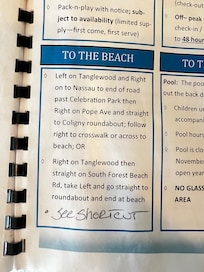 Pack-n-play with notice; sub-
ject to availability (limited sup-
ply—first come, first serve)
TO THE BEACH
Left on Tanglewood and Right
on to Nassau to end of road
past Celebration Park then
Right on Pope Ave and straight
to Coligny roundabout; follow
right to crosswalk or across to
beach; OR
Right on Tanglewood then
straight on South Forest Beach
Rd, take Left and go straight to
roundabout and end at beach
* See Shortcut
(check-out
Off– peak
check-in /
to 48 hour
TO T
Pool: The pool
out the back d
Children u
accompani
Pool hours
Pool is clo
November
open year
NO GLASS
AREA